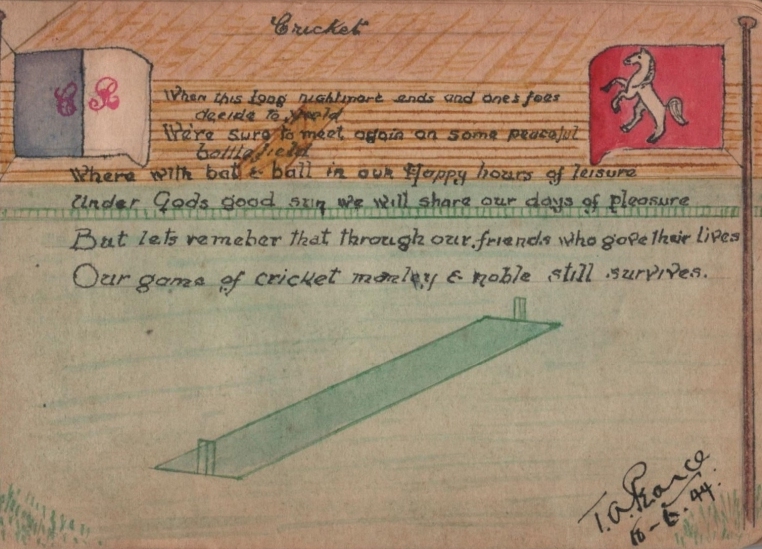 Cricket
When this long nightmare ends and ones foes
decide to yield
We're sure to meet again on some peaceful
battlefield
Where with bat & ball in our Happy hours of leisure
Under Gods good sun we will share our days of pleasure
But lets remeber that through our friends who gave their lives
Our game of cricket manley & noble still survives.
T.A. Pearce